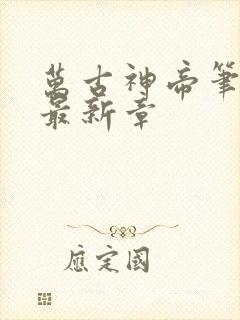 萬古神帝筆
最新章
應定國